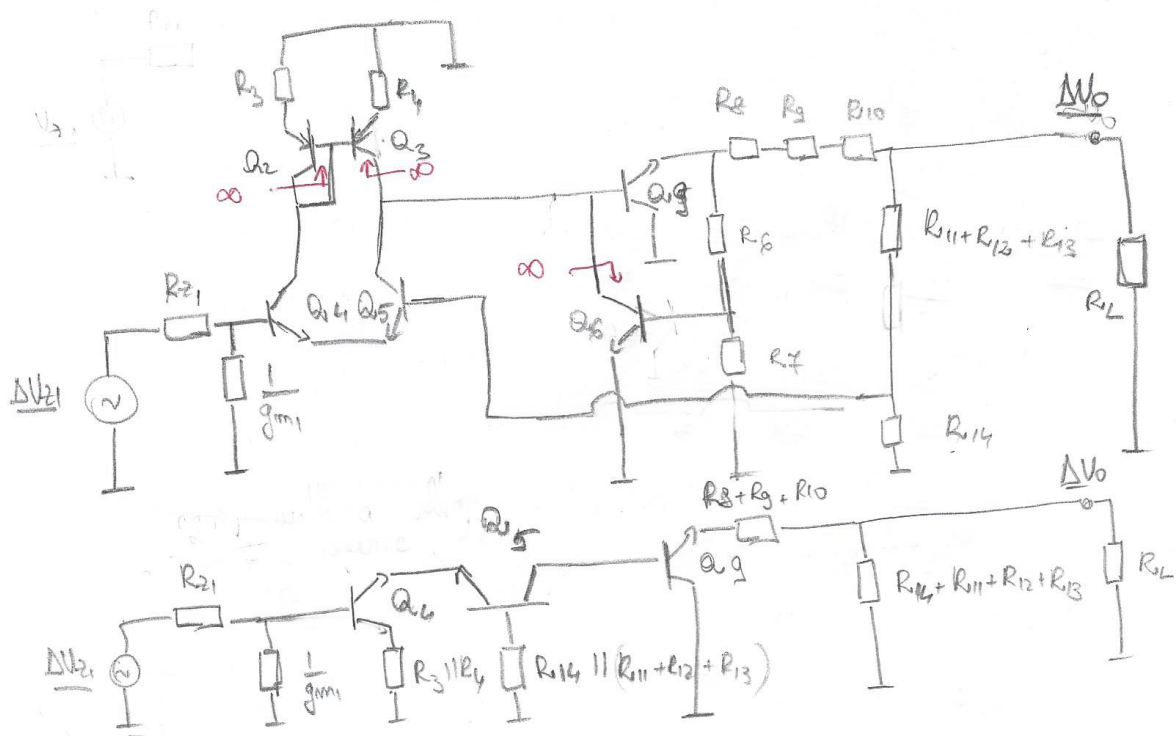 R3
R4
Q2
Q3
∞
∞
R8
R9
R10
ΔVo
Q9
R6
R11+R12+R13
RZ1
Q4
Q5
∞
Q6
R7
RL
ΔVZ1
1/gm1
R14
ΔVo
R8+R9+R10
Q5
RZ1
Q4
Q9
R14+R11+R12+R13
RL
ΔVZ1
1/gm1
R3||R4
R14||(R11+R12+R13)